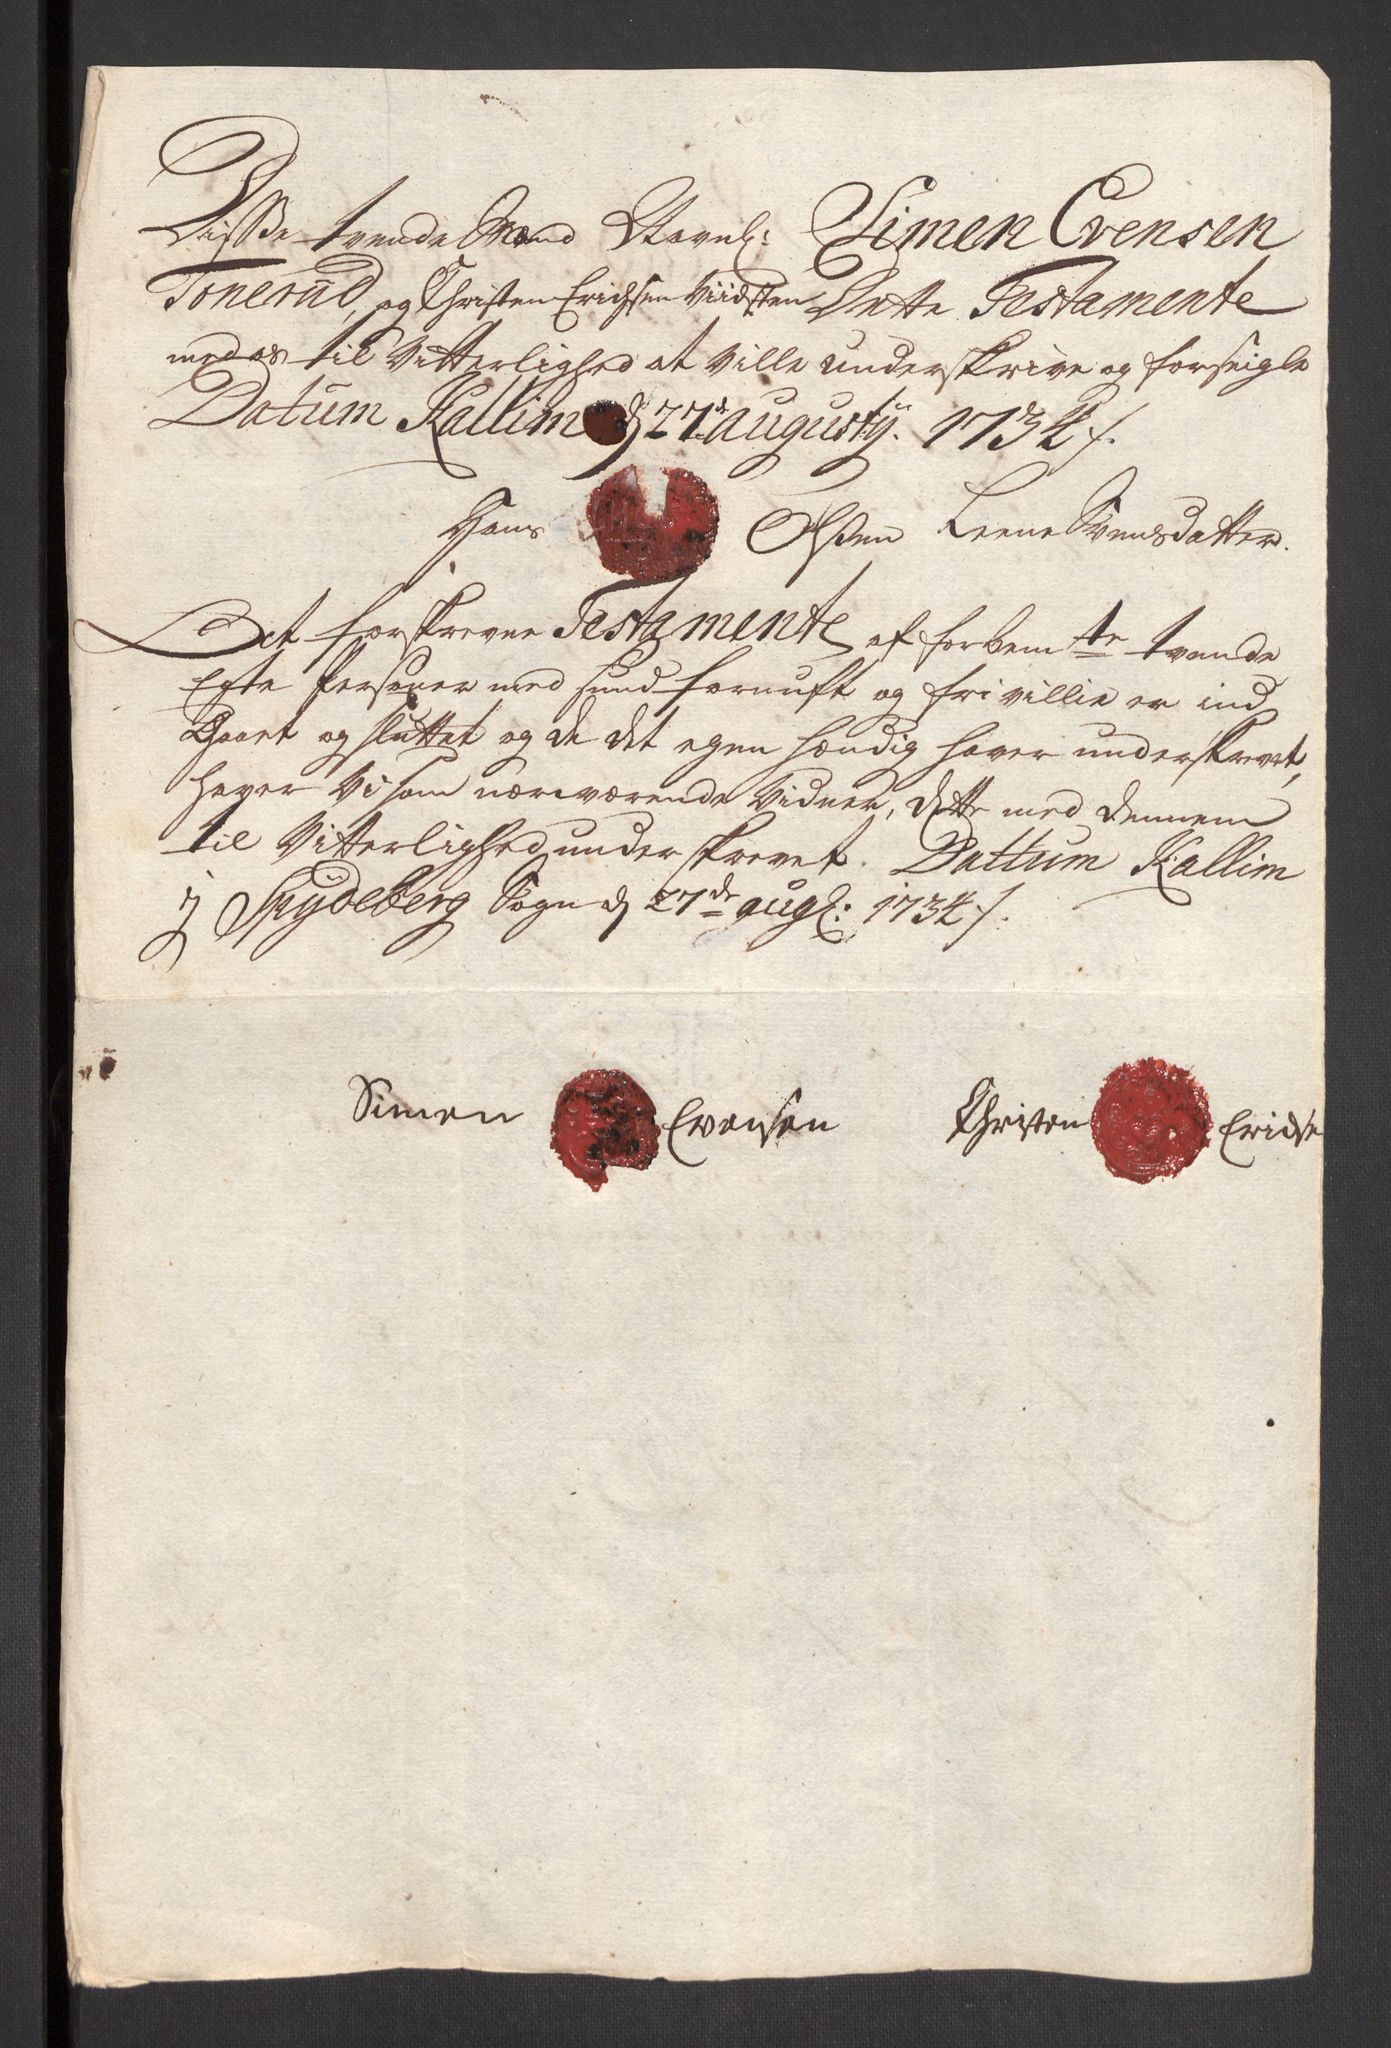 Disse tvende Mænd Navnl: Simen Evensen
Tonerud, og Christen Erichsen Viidsten Dette Testamente
med os til Vitterlighed at ville underskrive og forseigle
Datum Kallim d 27de augustij. 1734/.
Hans Olsen Leene Svensdatter.
Det forskrevne Testamente af forbemte tvende
Egte Personer med sund fornuft og fri villie er ind
Gaaet og sluttet og de det egen hændig haver underskrevet,
haver Vi som nærværende Vidner, dette med dennem
til Vitterlighed underskrevet. Dattum Kallim
ij Spydeberg Sogn d 27de augl: 1734/.
Simen Evensen Christen Erichse